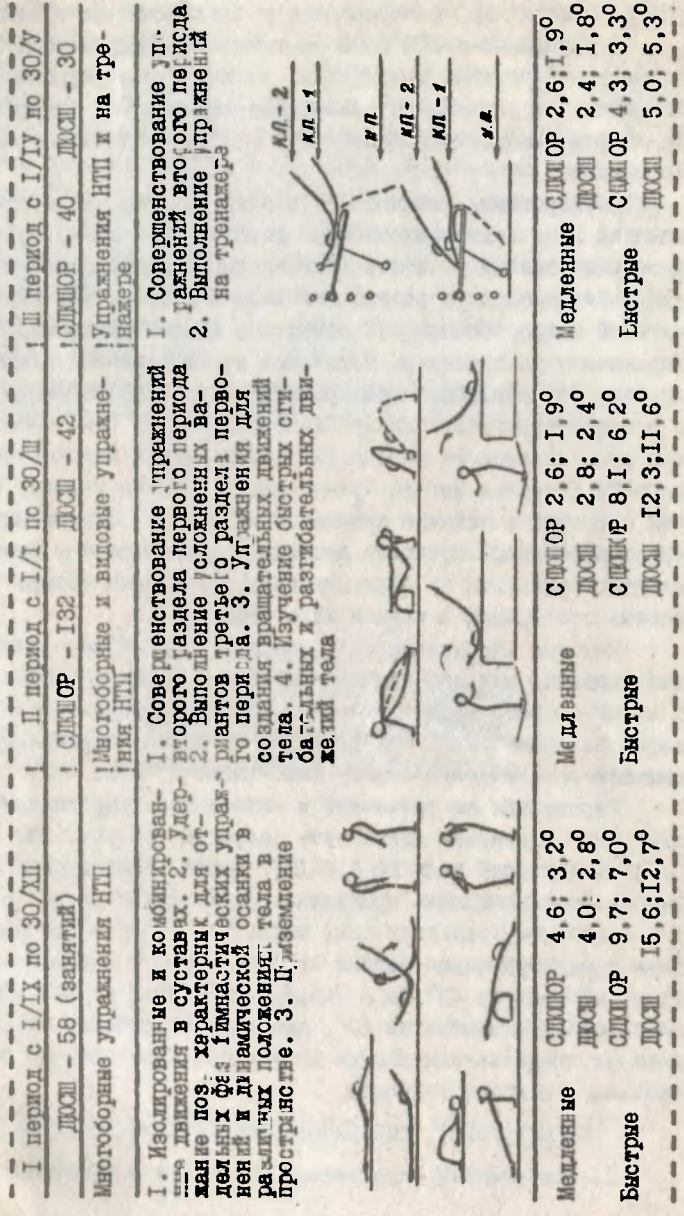 I период с I/IX по 30/XП ! П период с I/I по 30/Ш ! Ш период с I/IУ по 30/У
ДЮСШ - 58 (занятий) ! СДЮШОР - I32 ДЮСШ - 42 !СДЮШОР - 40 ДЮСШ - 30
Многоборные упражнения НТП !Многоборные и видовые упражне- !Упражнения НТП и на тре-
!ния НТП !нажере
I. Изолированные и комбинирован-
ные движения в суставах. 2. Удер-
жание поз характерных для от-
дельных фаз гимнастических упраж-
нений и динамической осанки в
различных положениях тела в
пространстве. 3. Приземление
I. Совершенствование упражнений
второго раздела первого периода
2. Выполнение усложненных ва-
риантов третьего раздела перво-
го периода. 3. Упражнения для
создания вращательных движений
тела. 4. Изучение быстрых сги-
бательных и разгибательных дви-
жений тела
I. Совершенствование уп-
ражнений второго периода
2. Выполнение упражнений
на тренажере
КП-2
КП-1
ИП
КП-2
КП-1
И.П.
Медленные СДЮШОР 4,6; 3,2°
ДЮСШ 4,0; 2,8°
Быстрые СДЮШОР 9,7; 7,0°
ДЮСШ I5,6;I2,7°
Медленные СДЮШОР 2,6; I,9°
ДЮСШ 2,8; 2,4°
Быстрые СДЮШОР 8,I; 6,2°
ДЮСШ I2,3;II,6°
Медленные СДЮШОР 2,6;I,9°
ДЮСШ 2,4; I,8°
Быстрые СДЮШОР 4,3; 3,3°
ДЮСШ 5,0; 5,3°